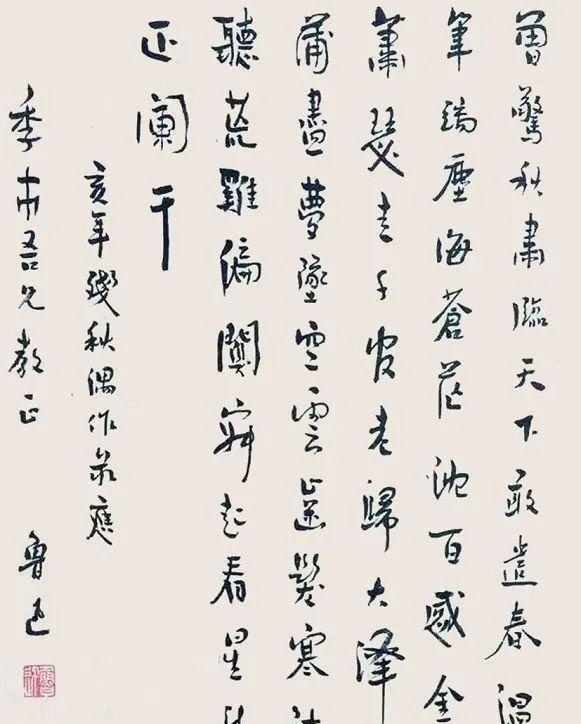 曾驚秋肅臨天下敢遣春溫
筆端塵海蒼茫沈百感金
蕭瑟走千官老歸大澤
蒲盡夢墜空雲齒髮寒
聽荒雞偏闃寂起看星
正闌干
亥年殘秋偶作錄應
季市吾兄教正 魯迅